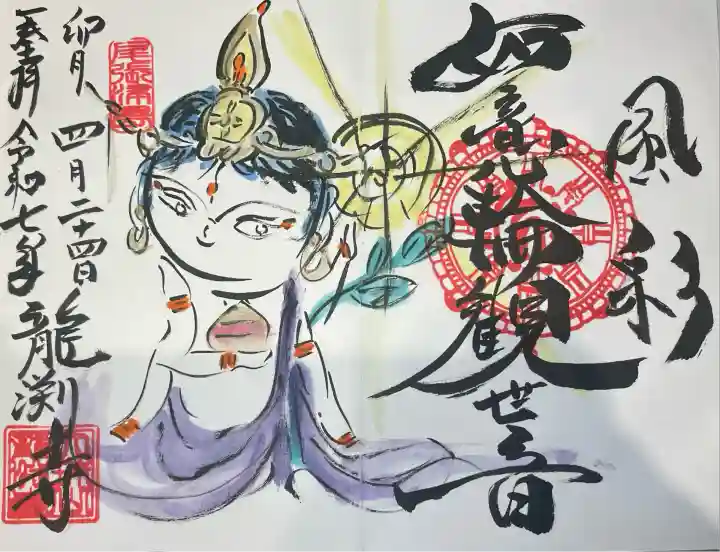 風彩
如意輪観世音
卯月
四月二十四日
奉拝
令和七年
龍渕寺